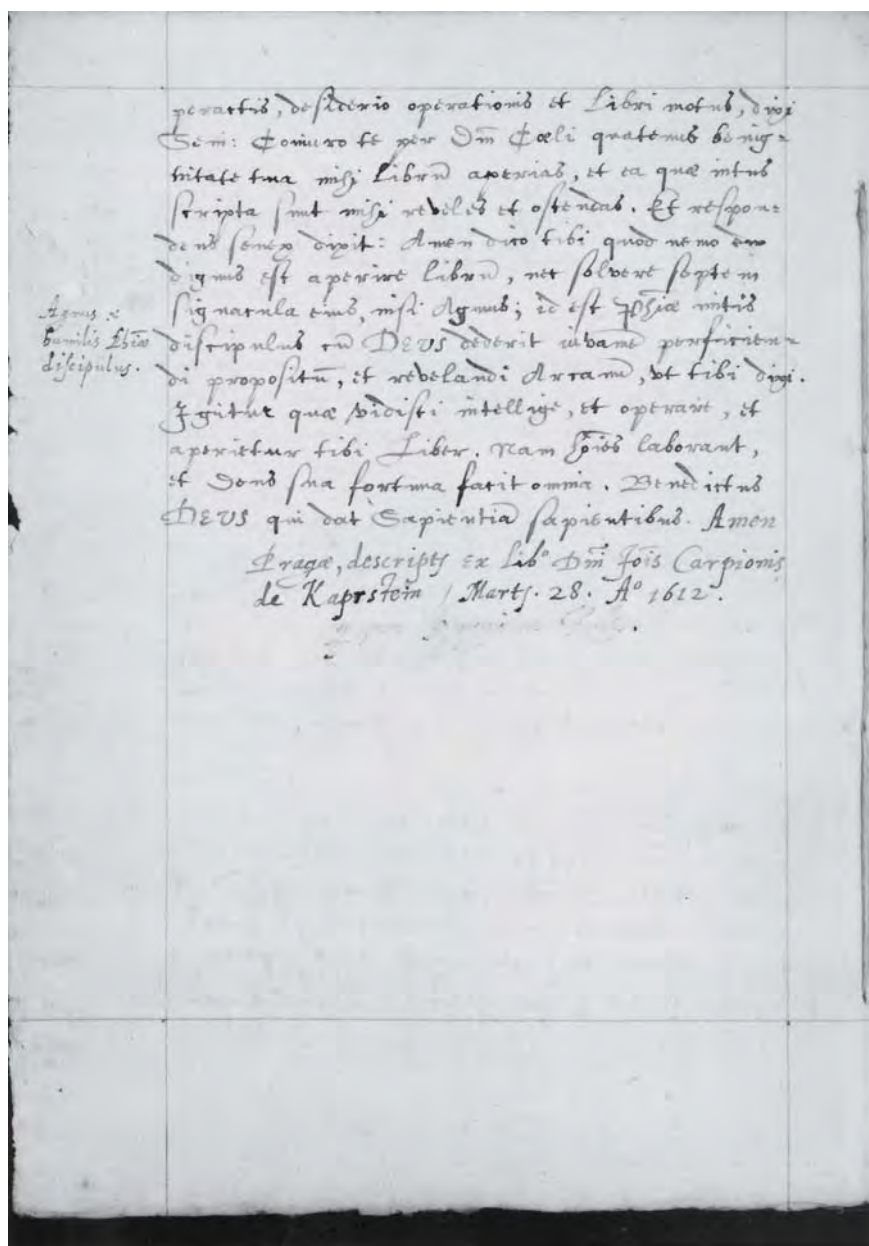 peractis, desiderio operationis et Libri motus, dixi
Seni: Coniuro te per Dm̄ Cœli quatenus benig-
nitate tua mihi Librū aperias, et ea quæ intus
scripta sunt mihi reveles et ostendas. Et respon-
dens senex dixit: Amen dico tibi quod nemo
dignus est aperire librū, nec solvere septem
signacula eius, nisi Agnus; id est Phiæ mitis
Agnus
humilis Phiæ
discipulus.
discipulus cū DEVS dederit iuvamē perficien-
di propositū, et revelandi Arcanū, vt tibi dixi.
Igitur quæ vidisti intellige, et operare, et
aperietur tibi Liber. Nam hoīes laborant,
et Deus sua fortuna facit omnia. Benedictus
DEVS qui dat Sapientiā sapientibus. Amen
Pragæ, descripts ex Lib° Dm̄ Jois Carpionis
de Kaprstein / Martj. 28. A° 1612.